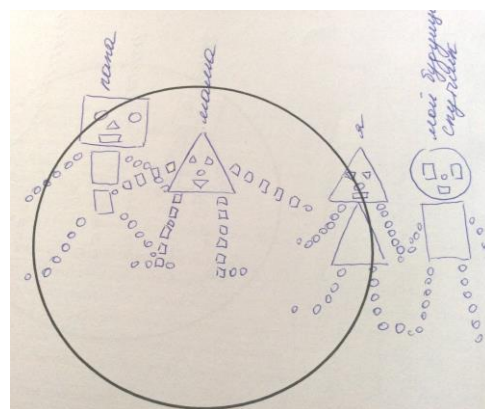 папа
мама
я
мой будущий
спутник